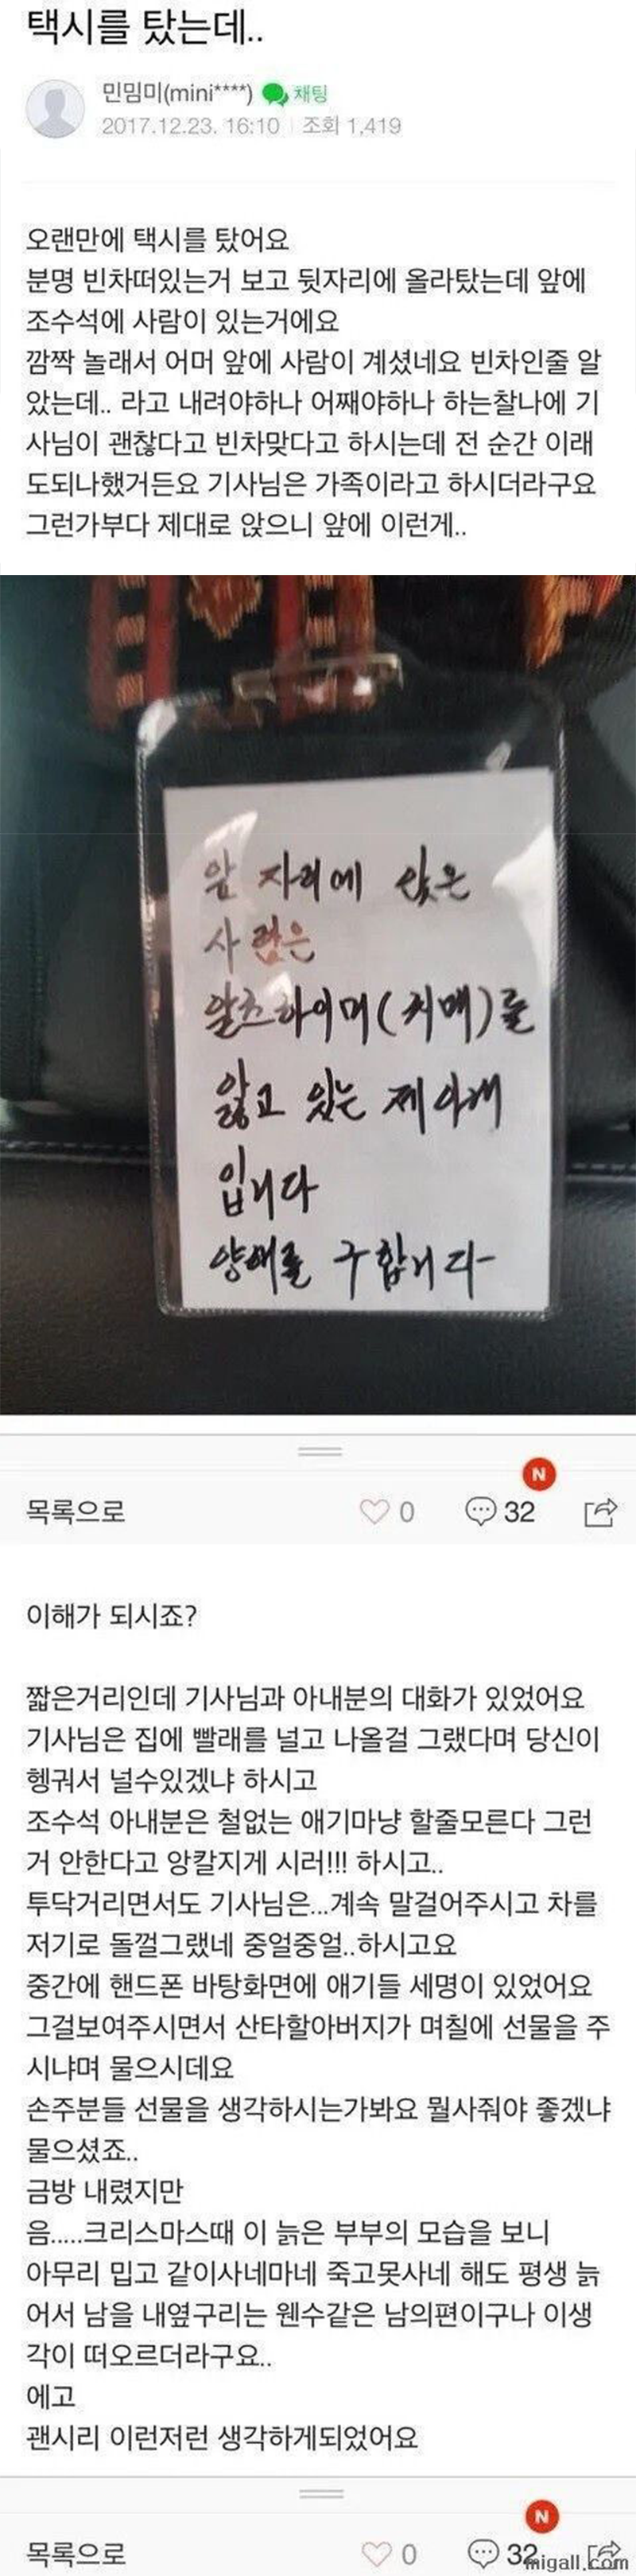 택시를 탔는데..
민밈미(mini****) 채팅
2017.12.23. 16:10 조회 1,419
오랜만에 택시를 탔어요
분명 빈차떠있는거 보고 뒷자리에 올라탔는데 앞에
조수석에 사람이 있는거에요
깜짝 놀래서 어머 앞에 사람이 계셨네요 빈차인줄 알
았는데.. 라고 내려야하나 어째야하나 하는찰나에 기
사님이 괜찮다고 빈차맞다고 하시는데 전 순간 이래
도되나했거든요 기사님은 가족이라고 하시더라구요
그런가부다 제대로 앉으니 앞에 이런게..
앞 자리에 앉은
사람은
알츠하이머(치매)를
앓고 있는 제 아내
입니다
양해를 구합니다
N
목록으로 0 32
이해가 되시죠?
짧은거리인데 기사님과 아내분의 대화가 있었어요
기사님은 집에 빨래를 널고 나올걸 그랬다며 당신이
헹궈서 널수있겠냐 하시고
조수석 아내분은 철없는 얘기마냥 할줄모른다 그런
거 안한다고 앙칼지게 시러!!! 하시고..
투닥거리면서도 기사님은...계속 말걸어주시고 차를
저기로 돌껄그랬네 중얼중얼..하시고요
중간에 핸드폰 바탕화면에 애기들 세명이 있었어요
그걸보여주시면서 산타할아버지가 며칠에 선물을 주
시냐며 물으시데요
손주분들 선물을 생각하시는가봐요 뭘사줘야 좋겠냐
물으셨죠..
금방 내렸지만
음.....크리스마스때 이 늙은 부부의 모습을 보니
아무리 밉고 같이사네마네 죽고못사네 해도 평생 늙
어서 남을 내옆구리는 웬수같은 남의편이구나 이생
각이 떠오르더라구요..
에고
괜시리 이런저런 생각하게되었어요
N
목록으로 0 32
migall.com